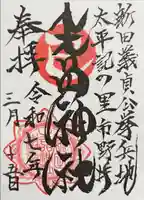 新田義貞公挙兵地
太平記の里市野井
生品神社
令和七年
奉拝
三月